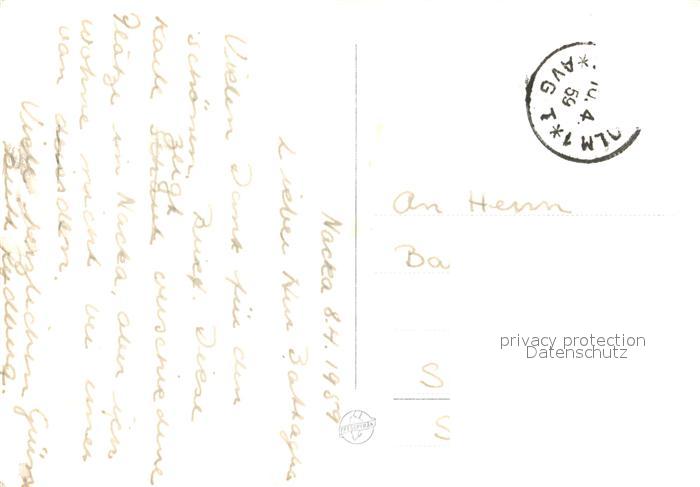 Nacka 8.4.1959
Lieber Herr Battaglia
Vielen Dank für den
schönen Brief. Diese
Karte zeigt verschiedene
Plätze in Nacka, aber ich
wohne nicht bei
von
Viele herzlichen Grüsse
Ruth
An Herrn
Ba
S
S
OLM 1
10. 4.
59
AVG I
privacy protection
Datenschutz